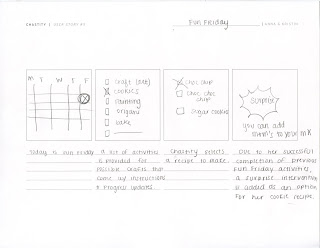 CHASTITY | USER STORY #3
Fun Friday
M T W S F
craft (DIY)
COOKIES
painting
origami
bake
choc chip
choc choc chip
sugar cookie
SURPRISE!
you can add
m&m's to your mix
Today is Fun Friday
A list of activities
is provided for
possible crafts that
come w/ instructions
& progress updates.
Chastity selects
a recipe to make.
Due to her successful
completion of previous
Fun Friday activities,
a surprise intervention
is added as an option
for her cookie recipe.